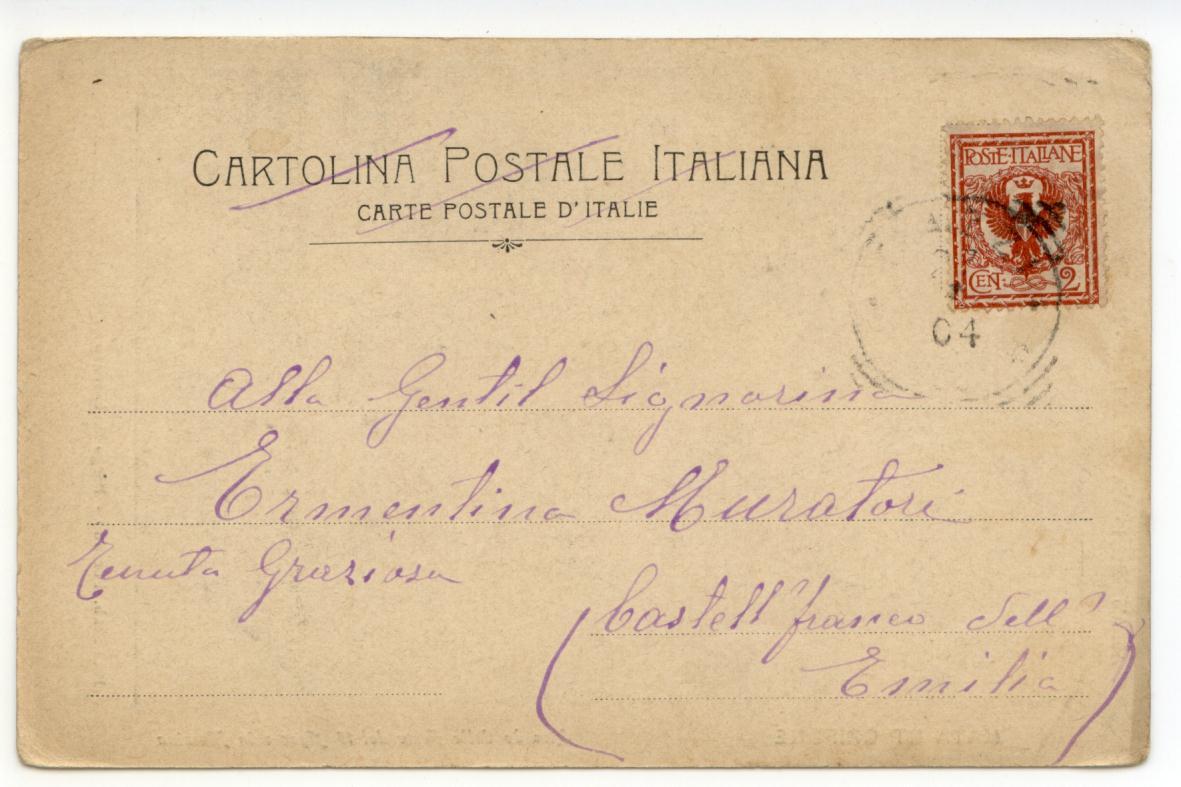 CARTOLINA POSTALE ITALIANA
CARTE POSTALE D'ITALIE
POSTE·ITALIANE
CEN: 2
04
Alla Gentil Signorina
Ermentina Muratori
Tenuta Graziosa
(Castell'franco dell'
Emilia)